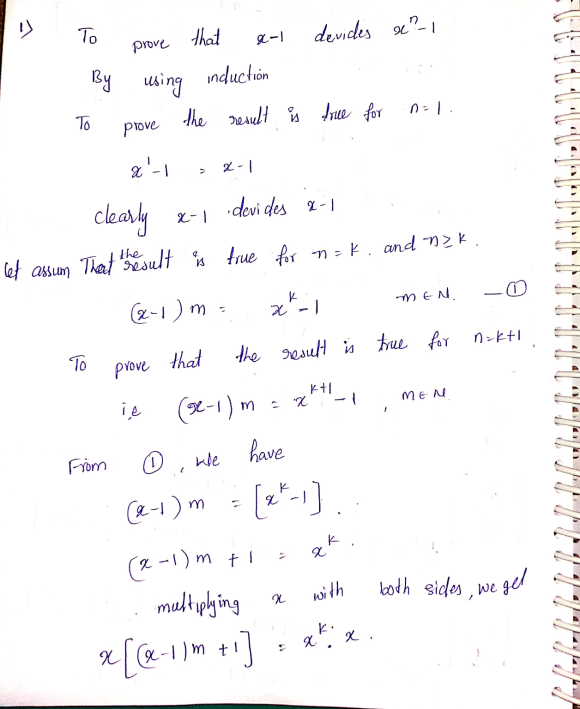 1) To prove that x-1 devides xⁿ-1
By using induction
To prove the result is true for n=1.
x¹-1 = x-1
clearly x-1 devides x-1
let assum That the result is true for n=k. and n≥k.
(x-1)m = xᵏ-1 m∈N. —①
To prove that the result is true for n=k+1.
i.e (x-1)m = xᵏ⁺¹-1, m∈N.
From ①, we have
(x-1)m = [xᵏ-1].
(x-1)m+1 = xᵏ.
multiplying x with both sides, we get
x[(x-1)m+1] = xᵏ.x.